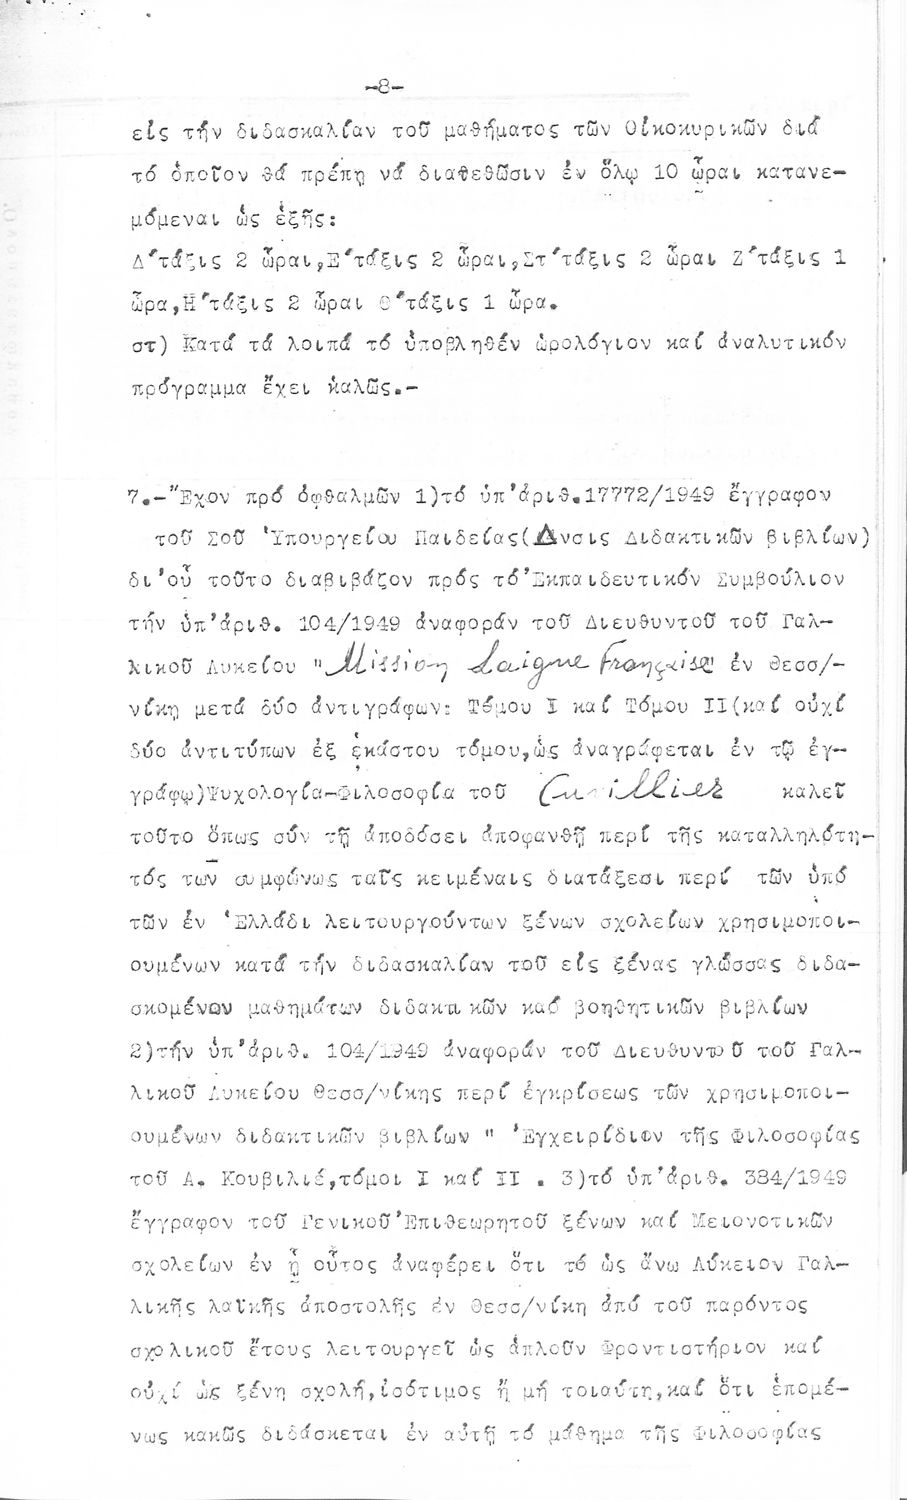 -8-
είς τήν διδασκαλίαν τοῦ μαθήματος τῶν Οἰκοκυρικῶν διά
τό ὁποῖον θά πρέπῃ νά διατεθῶσιν ἐν ὅλῳ 10 ὧραι κατανε-
μόμεναι ὡς ἑξῆς:
Δ΄τάξις 2 ὧραι,Ε΄τάξις 2 ὧραι,Στ΄τάξις 2 ὧραι Ζ΄τάξις 1
ὧρα,Η΄τάξις 2 ὧραι Θ΄τάξις 1 ὧρα.
στ) Κατά τά λοιπά τό ὑποβληθέν ὡρολόγιον καί ἀναλυτικόν
πρόγραμμα ἔχει καλῶς.-
7.-Ἔχον πρό ὀφθαλμῶν 1)τό ὑπ'ἀριθ.17772/1949 ἔγγραφον
τοῦ Σοῦ Ὑπουργείου Παιδείας(Δνσις Διδακτικῶν βιβλίων)
δι'οὗ τοῦτο διαβιβάζον πρός τό Ἐκπαιδευτικόν Συμβούλιον
τήν ὑπ'ἀριθ. 104/1949 ἀναφοράν τοῦ Διευθυντοῦ τοῦ Γαλ-
λικοῦ Λυκείου "Mission Laique Française" ἐν Θεσσ/-
νίκῃ μετά δύο ἀντιγράφων: Τόμου Ι καί Τόμου ΙΙ(καί οὐχί
δύο ἀντιτύπων ἐξ ἑκάστου τόμου,ὡς ἀναγράφεται ἐν τῷ ἐγ-
γράφῳ)Ψυχολογία-Φιλοσοφία τοῦ Cuvillier καλεῖ
τοῦτο ὅπως σύν τῇ ἀποδόσει ἀποφανθῇ περί τῆς καταλληλότη-
τός των συμφώνως ταῖς κειμέναις διατάξεσι περί τῶν ὑπό
τῶν ἐν Ἑλλάδι λειτουργούντων ξένων σχολείων χρησιμοποι-
ουμένων κατά τήν διδασκαλίαν τοῦ εἰς ξένας γλώσσας διδα-
σκομένων μαθημάτων διδακτικῶν καί βοηθητικῶν βιβλίων
2)τήν ὑπ'ἀριθ. 104/1949 ἀναφοράν τοῦ Διευθυντοῦ τοῦ Γαλ-
λικοῦ Λυκείου Θεσσ/νίκης περί ἐγκρίσεως τῶν χρησιμοποι-
ουμένων διδακτικῶν βιβλίων " Ἐγχειρίδιον τῆς Φιλοσοφίας
τοῦ Α. Κουβιλιέ,τόμοι Ι καί ΙΙ . 3)τό ὑπ'ἀριθ. 384/1949
ἔγγραφον τοῦ Γενικοῦ Ἐπιθεωρητοῦ ξένων καί Μειονοτικῶν
σχολείων ἐν ᾗ οὗτος ἀναφέρει ὅτι τό ὡς ἄνω Λύκειον Γαλ-
λικῆς λαϊκῆς ἀποστολῆς ἐν Θεσσ/νίκῃ ἀπό τοῦ παρόντος
σχολικοῦ ἔτους λειτουργεῖ ὡς ἁπλοῦν Φροντιστήριον καί
οὐχί ὡς ξένη σχολή,ἰσότιμος ἤ μή τοιαύτη,καί ὅτι ἑπομέ-
νως κακῶς διδάσκεται ἐν αὐτῇ τό μάθημα τῆς Φιλοσοφίας